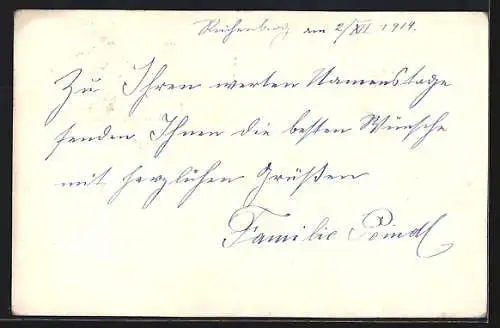 Reichenberg am 2/XII 1914.
Zu Ihren werten Namenstage
senden Ihnen die besten Wünsche
mit herzlichen Grüßen
Familie